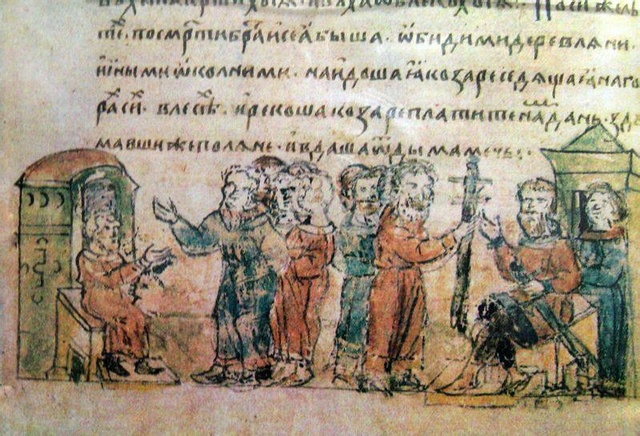 посиⷯ жель
тѣ. посмрⷮти браⷮи сеꙗ быша. ѡбидими деревлѧни
иными ѡколними. наидоша ꙗ козаре седѧщаꙗ наго
расиⷯ. влесѣⷯ. ирекоша козаре платите наⷨ дань. здꙋ
мавши же полѧне. ивдаша ѿ дыма мечь